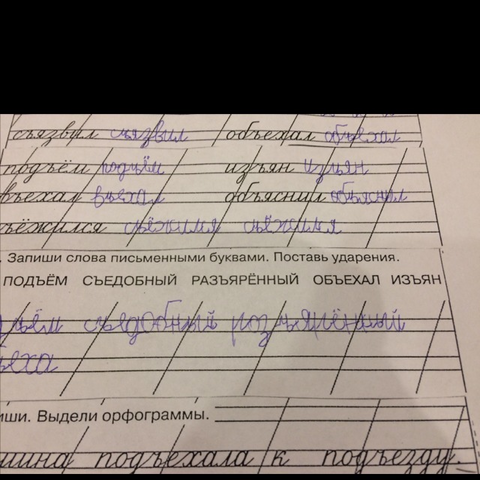 съязвил съязвил объехал объехал
подъём подъём изъян изъян
въехал въехал объяснил объяснил
ъёжился съёжился съёжился
. Запиши слова письменными буквами. Поставь ударения.
ПОДЪЁМ СЪЕДОБНЫЙ РАЗЪЯРЁННЫЙ ОБЪЕХАЛ ИЗЪЯН
ъём съедобный розъярённый
ъеха
иши. Выдели орфограммы.
шина подъехала к подъезду